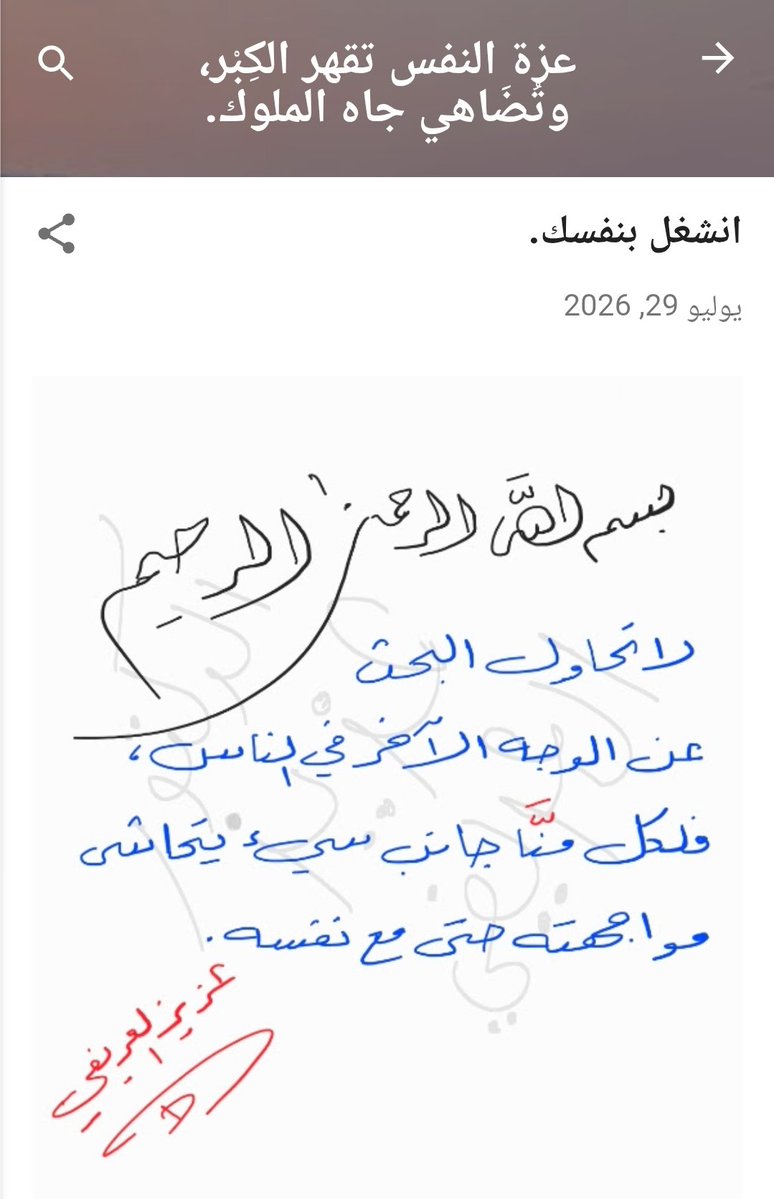 عزة النفس تقهر الكِبْر،
وتُضَاهي جاه الملوك.
انشغل بنفسك.
يوليو 29, 2026
بسم الله الرحمن الرحيم
لا تحاول البحث
عن الوجه الآخر في الناس،
فلكل منَّا جانب سيء يتحاشى
مواجهته حتى مع نفسه.
عزيز العريفي